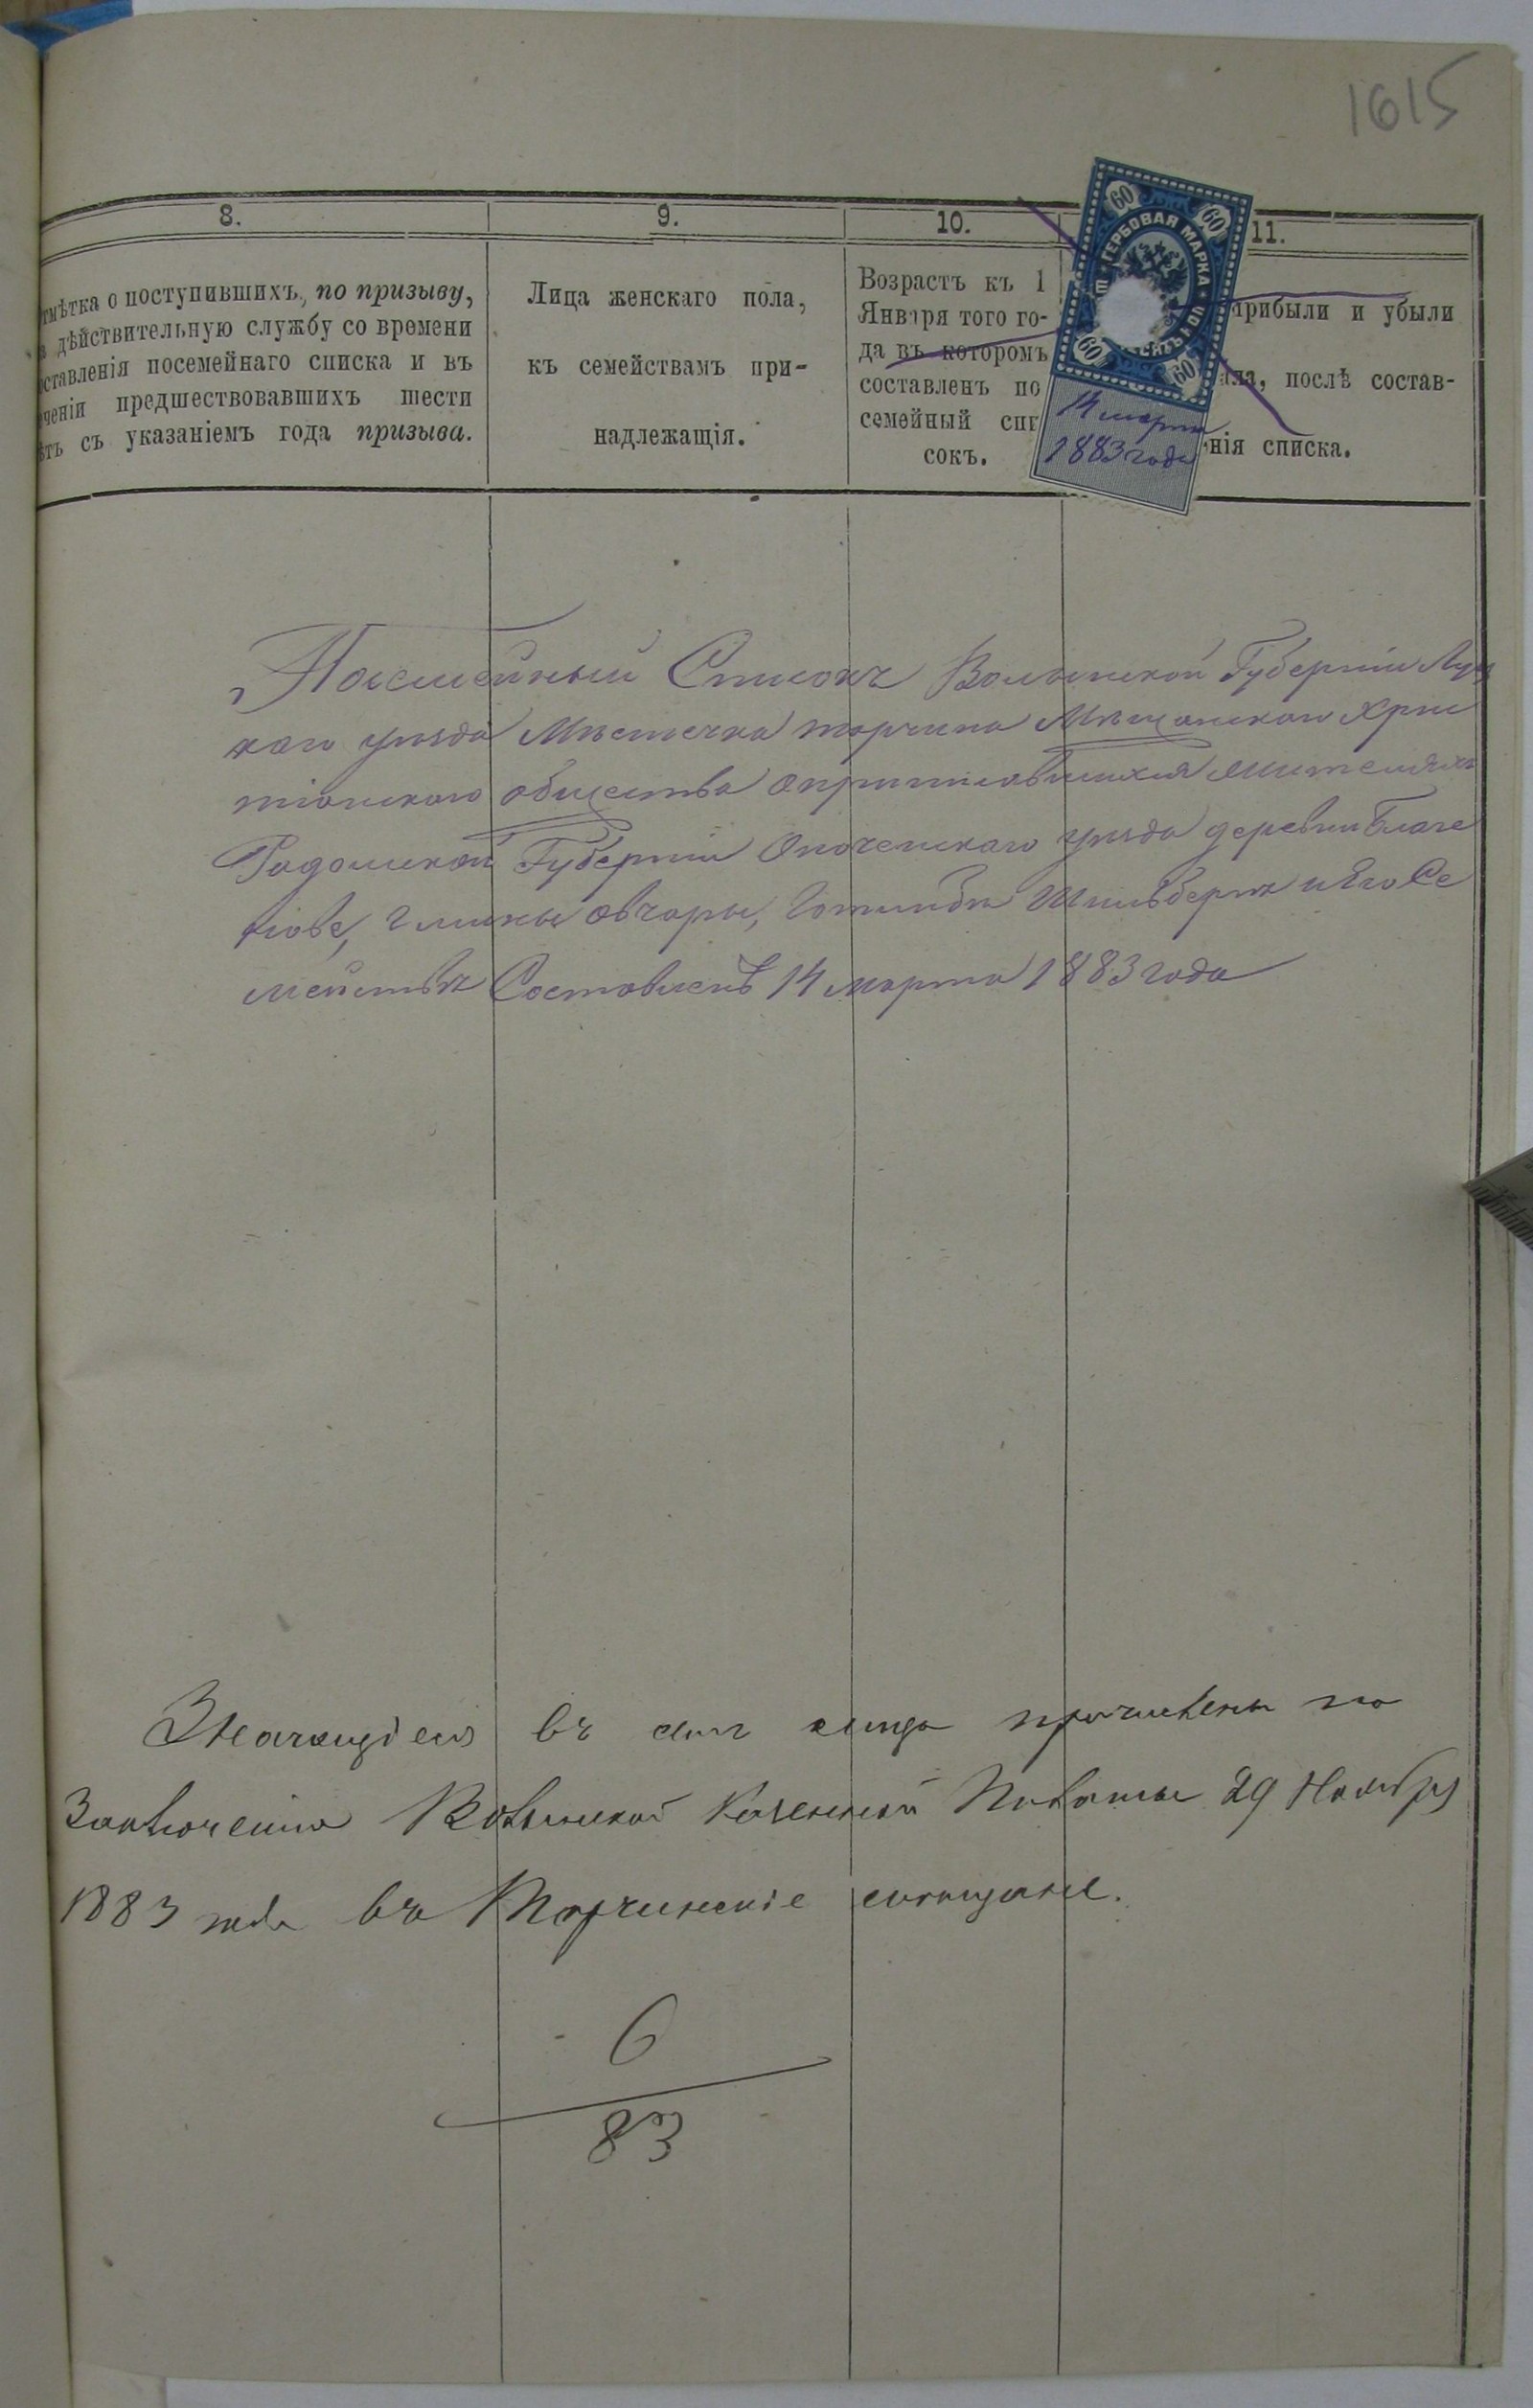 1615
8. 9. 10. 11.
тмѣтка о поступившихъ, по призыву,
дѣйствительную службу со времени
оставленія посемейнаго списка и въ
ченіи предшествовавшихъ шести
ѣтъ съ указаніемъ года призыва.
Лица женскаго пола,
къ семействамъ при-
надлежащія.
Возрастъ къ 1
Января того го-
да въ которомъ
составленъ по
семейный спи
сокъ.
прибыли и убыли
ала, послѣ состав-
нія списка.
60 60
ГЕРБОВАЯ МАРКА
60 60
14 марта
1883 года
Посемейный Списокъ Волынской Губерніи Луц
каго уѣзда Мѣстечка Торчина Мѣщанскаго Хрис
тіанскаго общества о приписавшихся жителяхъ
Радомской Губерніи Опоченскаго уѣзда деревни
гмины Овчары, Готлибъ и Его Се
мействѣ Составленъ 14 марта 1883 года
Значащіеся въ семъ причислены по
Заключенію Волынской Казенной Палаты 29 Ноября
1883 года въ Торчинскіе мѣщане.
6
83